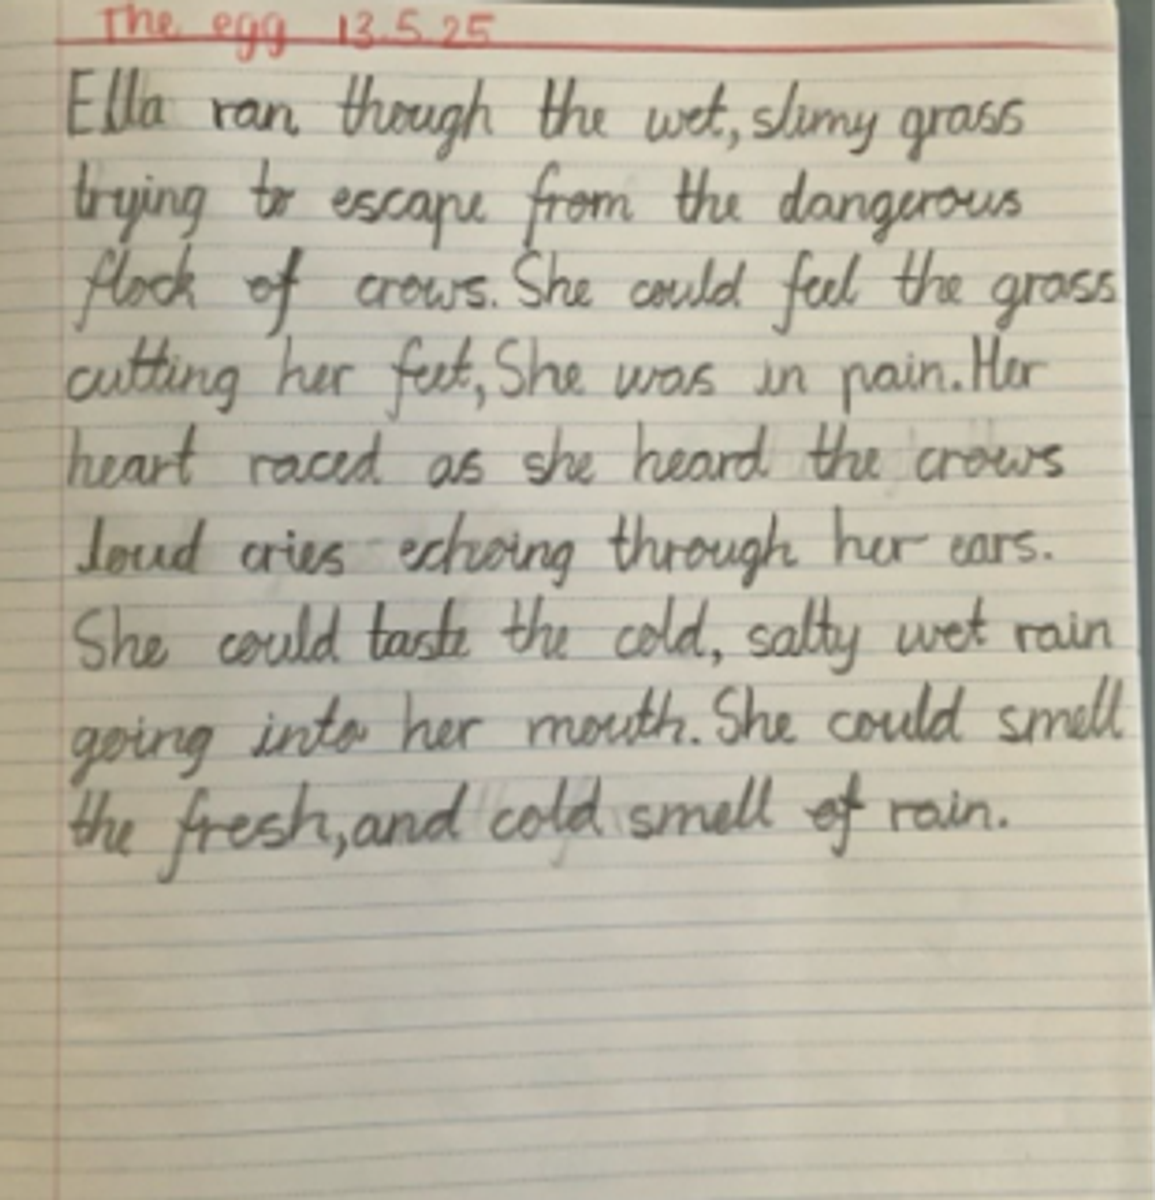 The egg 13.5.25
Ella ran though the wet, slimy grass
trying to escape from the dangerous
flock of crows. She could feel the grass
cutting her feet, She was in pain. Her
heart raced as she heard the crows
loud cries echoing through her ears.
She could taste the cold, salty wet rain
going into her mouth. She could smell
the fresh, and cold smell of rain.